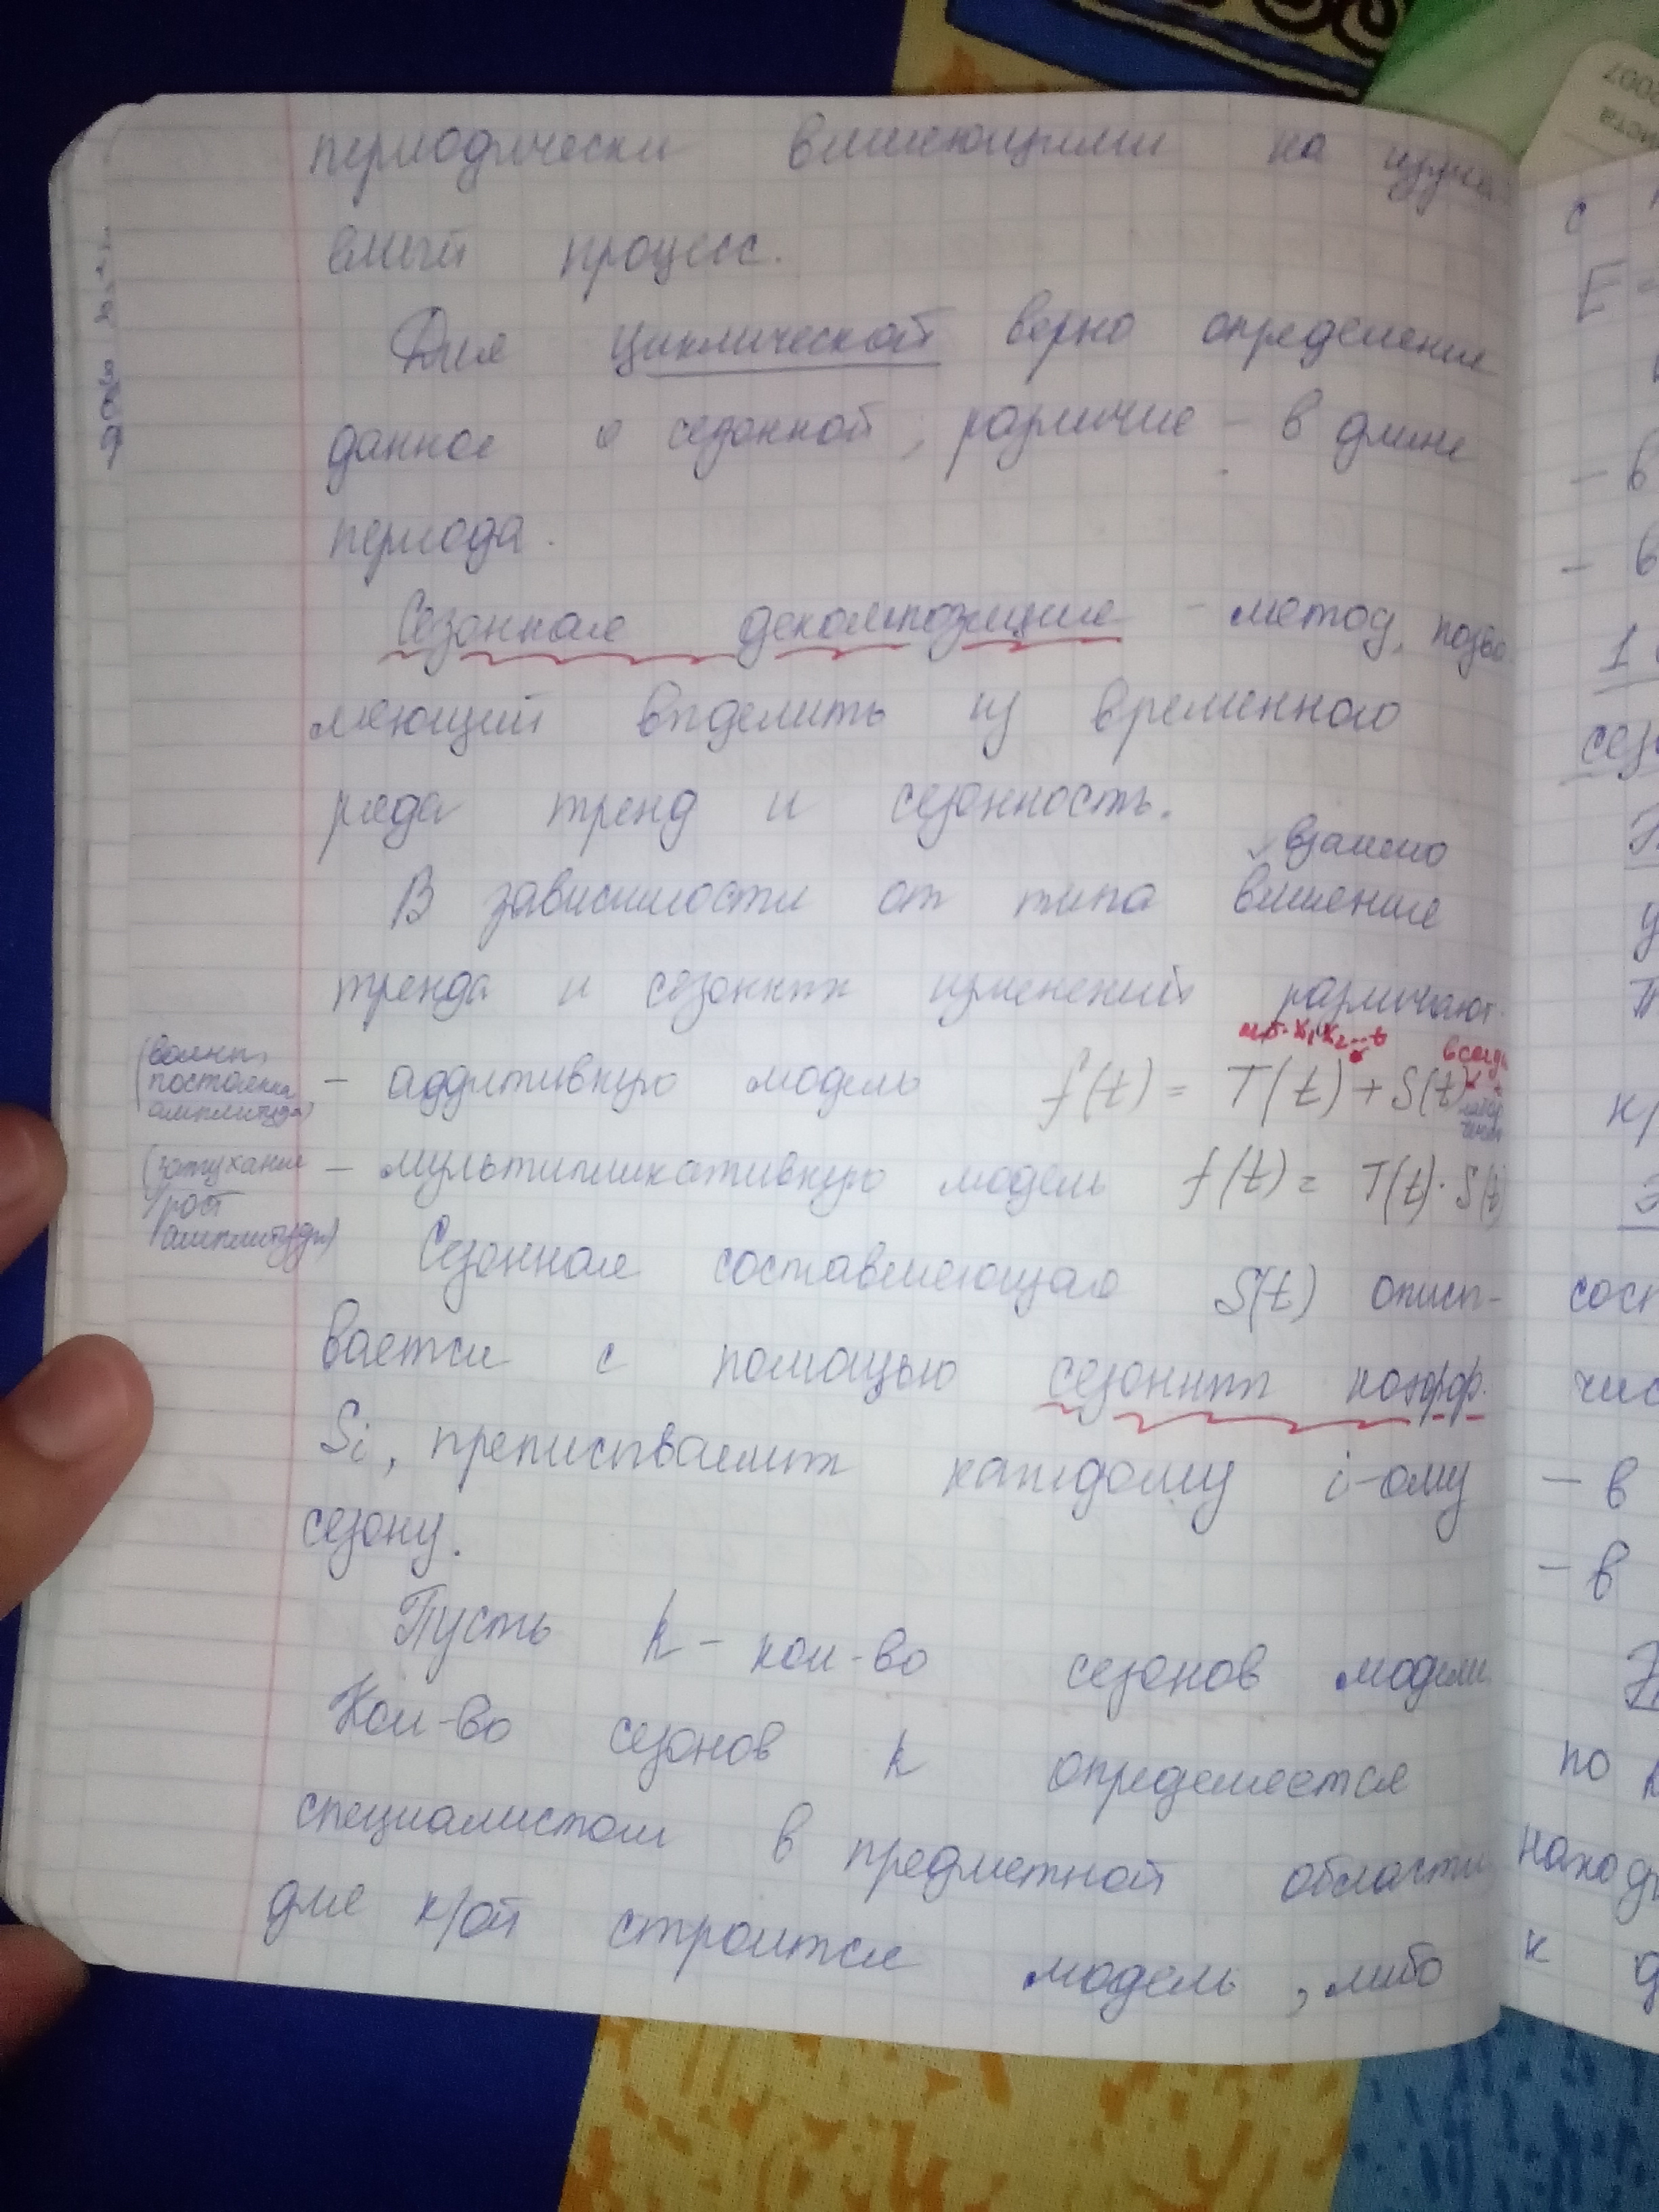 периодически влияющими на изуча
емый процесс.
Для циклической верно определение
данное о сезонной, различие - в длине
периода.
Сезонная декомпозиция - метод, позво
ляющий выделить из временного
ряда тренд и сезонность.
взаимо
В зависимости от типа влияние
тренда и сезонных изменений различают
м.б. x₁, x₂ ... t
всегда
(волны,
постоянная
амплитуда)
- аддитивную модель f(t) = T(t) + S(t)
(затухание
/рост
амплитуды)
- мультипликативную модель f(t) = T(t) · S(t)
Сезонная составляющая S(t) описы-
вается с помощью сезонных коэфф.
Si, преписываемых каждому i-ому
сезону.
Пусть k - кол-во сезонов модели
Кол-во сезонов k определяется
специалистом в предметной области
для к/ой строится модель, либо
с
E =
- в
- в
1
сез
к/
сост
чис
- в
- в
по
находи
к